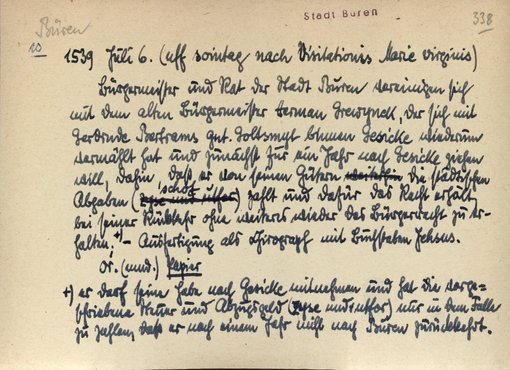 Stadt Büren
338
Büren
10
1539 Juli 6. (uff sontag nach Visitationis Marie virginis)
Bürgermeister und Rat der Stadt Büren vereinigen sich
mit dem alten Bürgermeister Herman, der sich mit
Gerdruda Bertrams gut. binnen Gesicke wiederum
vermählt hat und zunächst für ein Jahr nach Gesicke ziehen
will, dahin, daß er von seinen Gütern weiterhin die städtischen
Abgaben (schot) zahlt und dafür das Recht erhält,
bei seiner Rückkehr ohne weiteres wieder das Bürgerrecht zu er-
halten. +) - Ausfertigung als Chirograph mit Buchstaben Jehsus.
Or. (mnd.) Papier
+) er darf seine Habe nach Gesicke mitnehmen und hat die vorge-
schriebene Steuer und Abzugsgeld nur in dem Falle
zu zahlen, daß er nach einem Jahr nicht nach Büren zurückkehrt.